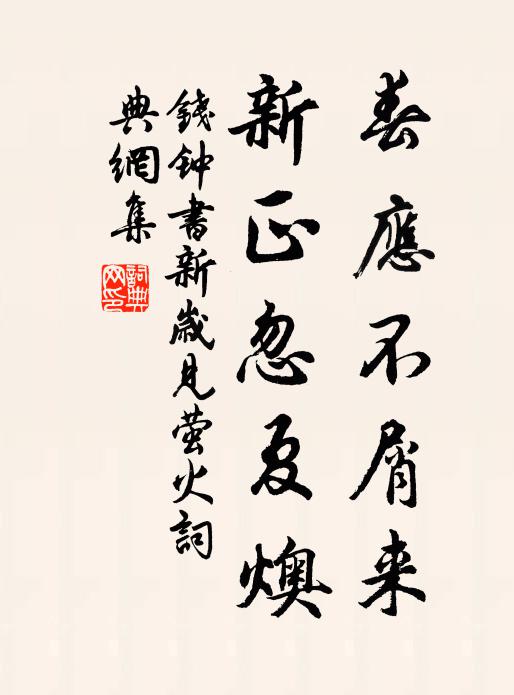 春應不屑来
新正忽夏燠
錢钟書新歲見萤火詞
典網集
詞典
网印